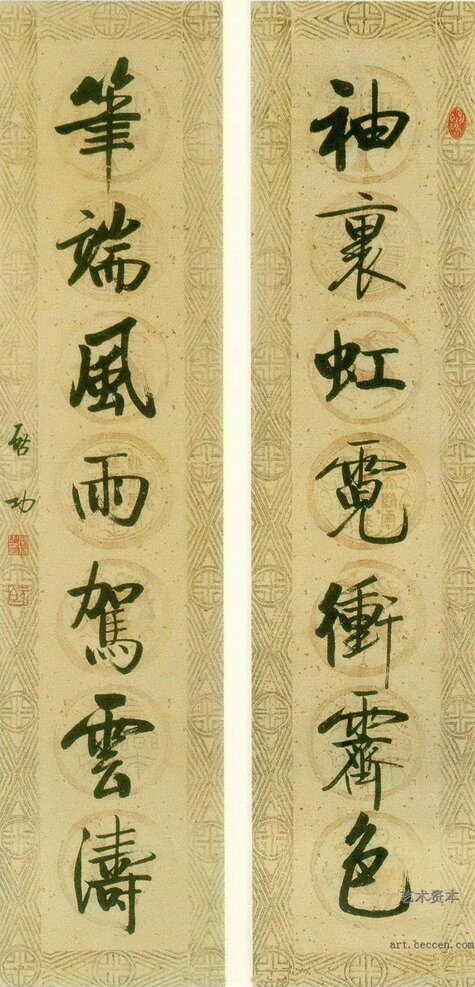 袖裏虹霓衝霽色
筆端風雨駕雲濤
啓功
艺术资本
art.ceccen.com